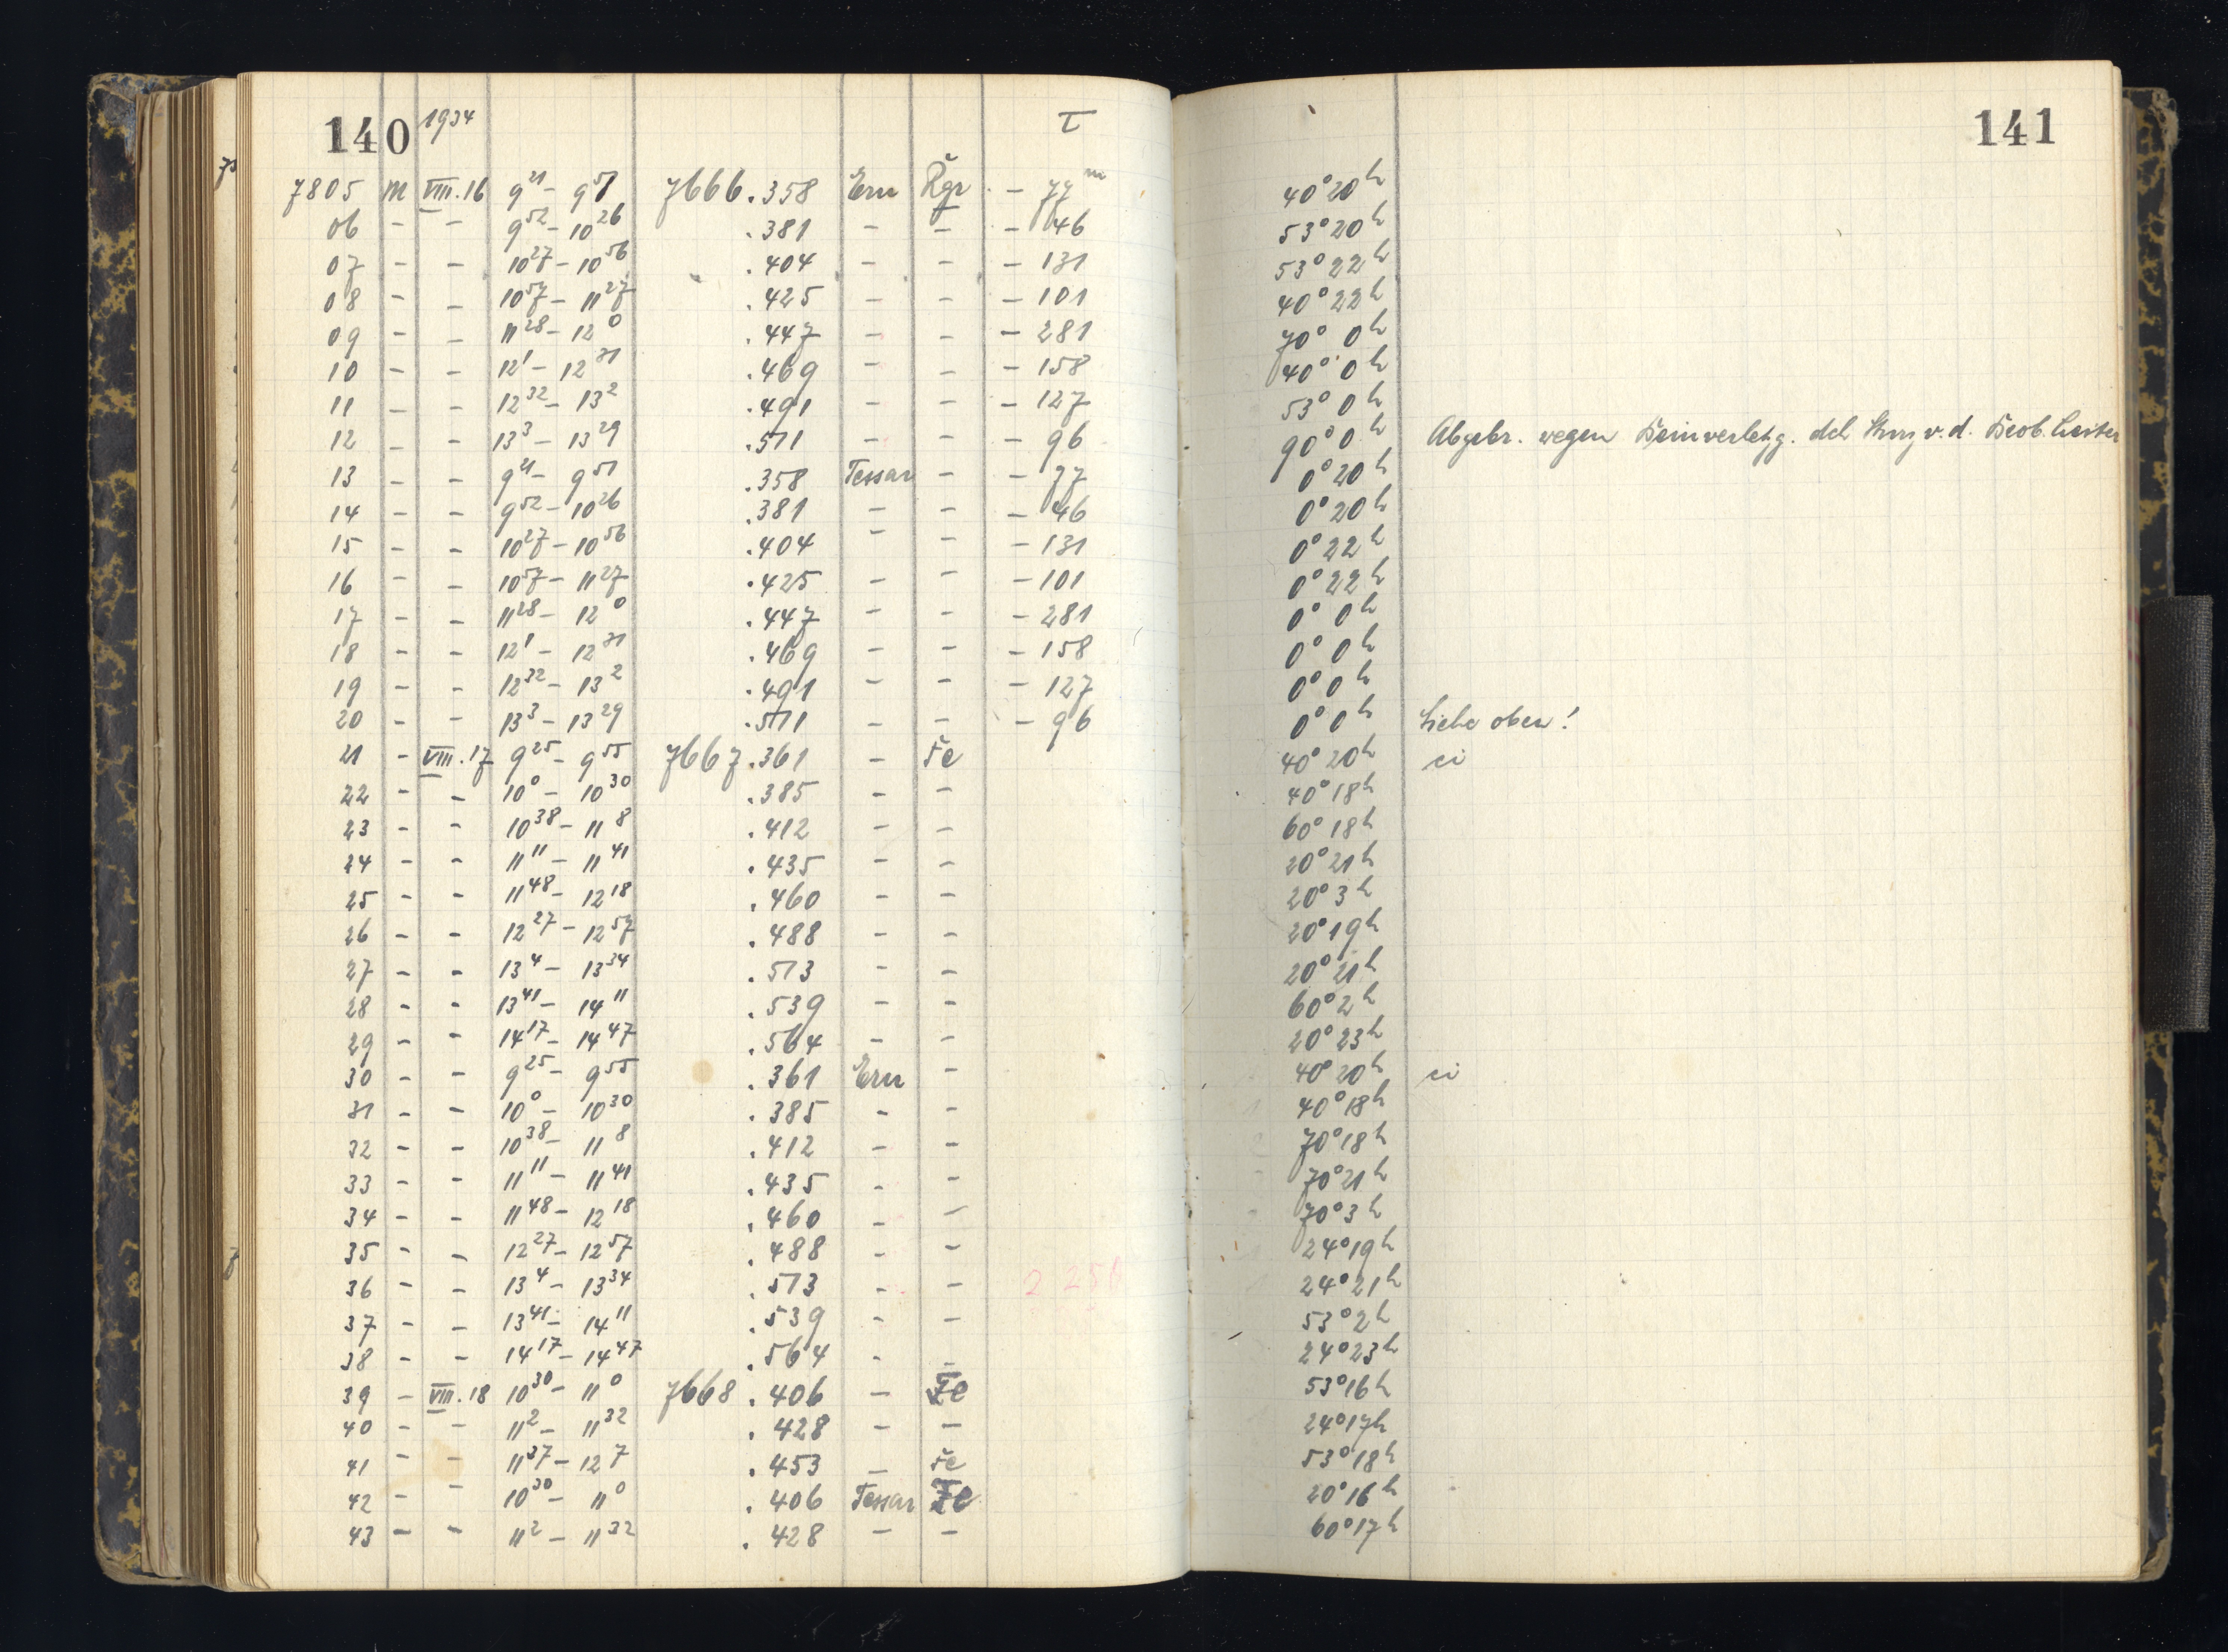 140 1934 τ 141
7805 m VIII.16 9 21 - 9 51 7666.358 Ern Rgr - 77 m 40° 20 h
06 - - 9 52 - 10 26 .381 - - - 46 53° 20 h
07 - - 10 27 - 10 56 .404 - - - 131 53° 22 h
08 - - 10 57 - 11 27 .425 - - - 101 40° 22 h
09 - - 11 28 - 12 0 .447 - - - 281 70° 0 h
10 - - 12 1 - 12 31 .469 - - - 158 40° 0 h
11 - - 12 32 - 13 2 .491 - - - 127 53° 0 h
12 - - 13 3 - 13 29 .511 - - - 96 90° 0 h Abgebr. wegen Beinverletzg. dch v. d. Beob. Leiter
13 - - 9 21 - 9 51 .358 Tessar - - 77 0° 20 h
14 - - 9 52 - 10 26 .381 - - - 46 0° 20 h
15 - - 10 27 - 10 56 .404 - - - 131 0° 22 h
16 - - 10 57 - 11 27 .425 - - - 101 0° 22 h
17 - - 11 28 - 12 0 .447 - - - 281 0° 0 h
18 - - 12 1 - 12 31 .469 - - - 158 0° 0 h
19 - - 12 32 - 13 2 .491 - - - 127 0° 0 h
20 - - 13 3 - 13 29 .511 - - - 96 0° 0 h Siehe oben!
21 - VIII.17 9 25 - 9 55 7667.361 - Fe 40° 20 h ci
22 - - 10 0 - 10 30 .385 - - 40° 18 h
23 - - 10 38 - 11 8 .412 - - 60° 18 h
24 - - 11 11 - 11 41 .435 - - 20° 21 h
25 - - 11 48 - 12 18 .460 - - 20° 3 h
26 - - 12 27 - 12 57 .488 - - 20° 19 h
27 - - 13 4 - 13 34 .513 - - 20° 21 h
28 - - 13 41 - 14 11 .539 - - 60° 2 h
29 - - 14 17 - 14 47 .564 - - 20° 23 h
30 - - 9 25 - 9 55 .361 Ern - 40° 20 h ci
31 - - 10 0 - 10 30 .385 - - 40° 18 h
32 - - 10 38 - 11 8 .412 - - 70° 18 h
33 - - 11 11 - 11 41 .435 - - 70° 21 h
34 - - 11 48 - 12 18 .460 - - 70° 3 h
35 - - 12 27 - 12 57 .488 - - 24° 19 h
36 - - 13 4 - 13 34 .513 - - 24° 21 h
37 - - 13 41 - 14 11 .539 - - 53° 2 h
38 - - 14 17 - 14 47 .564 - - 24° 23 h
39 - VIII.18 10 30 - 11 0 7668.406 - Fe 53° 16 h
40 - - 11 2 - 11 32 .428 - - 24° 17 h
41 - - 11 37 - 12 7 .453 - Fe 53° 18 h
42 - - 10 30 - 11 0 .406 Tessar Fe 20° 16 h
43 - - 11 2 - 11 32 .428 - - 60° 17 h